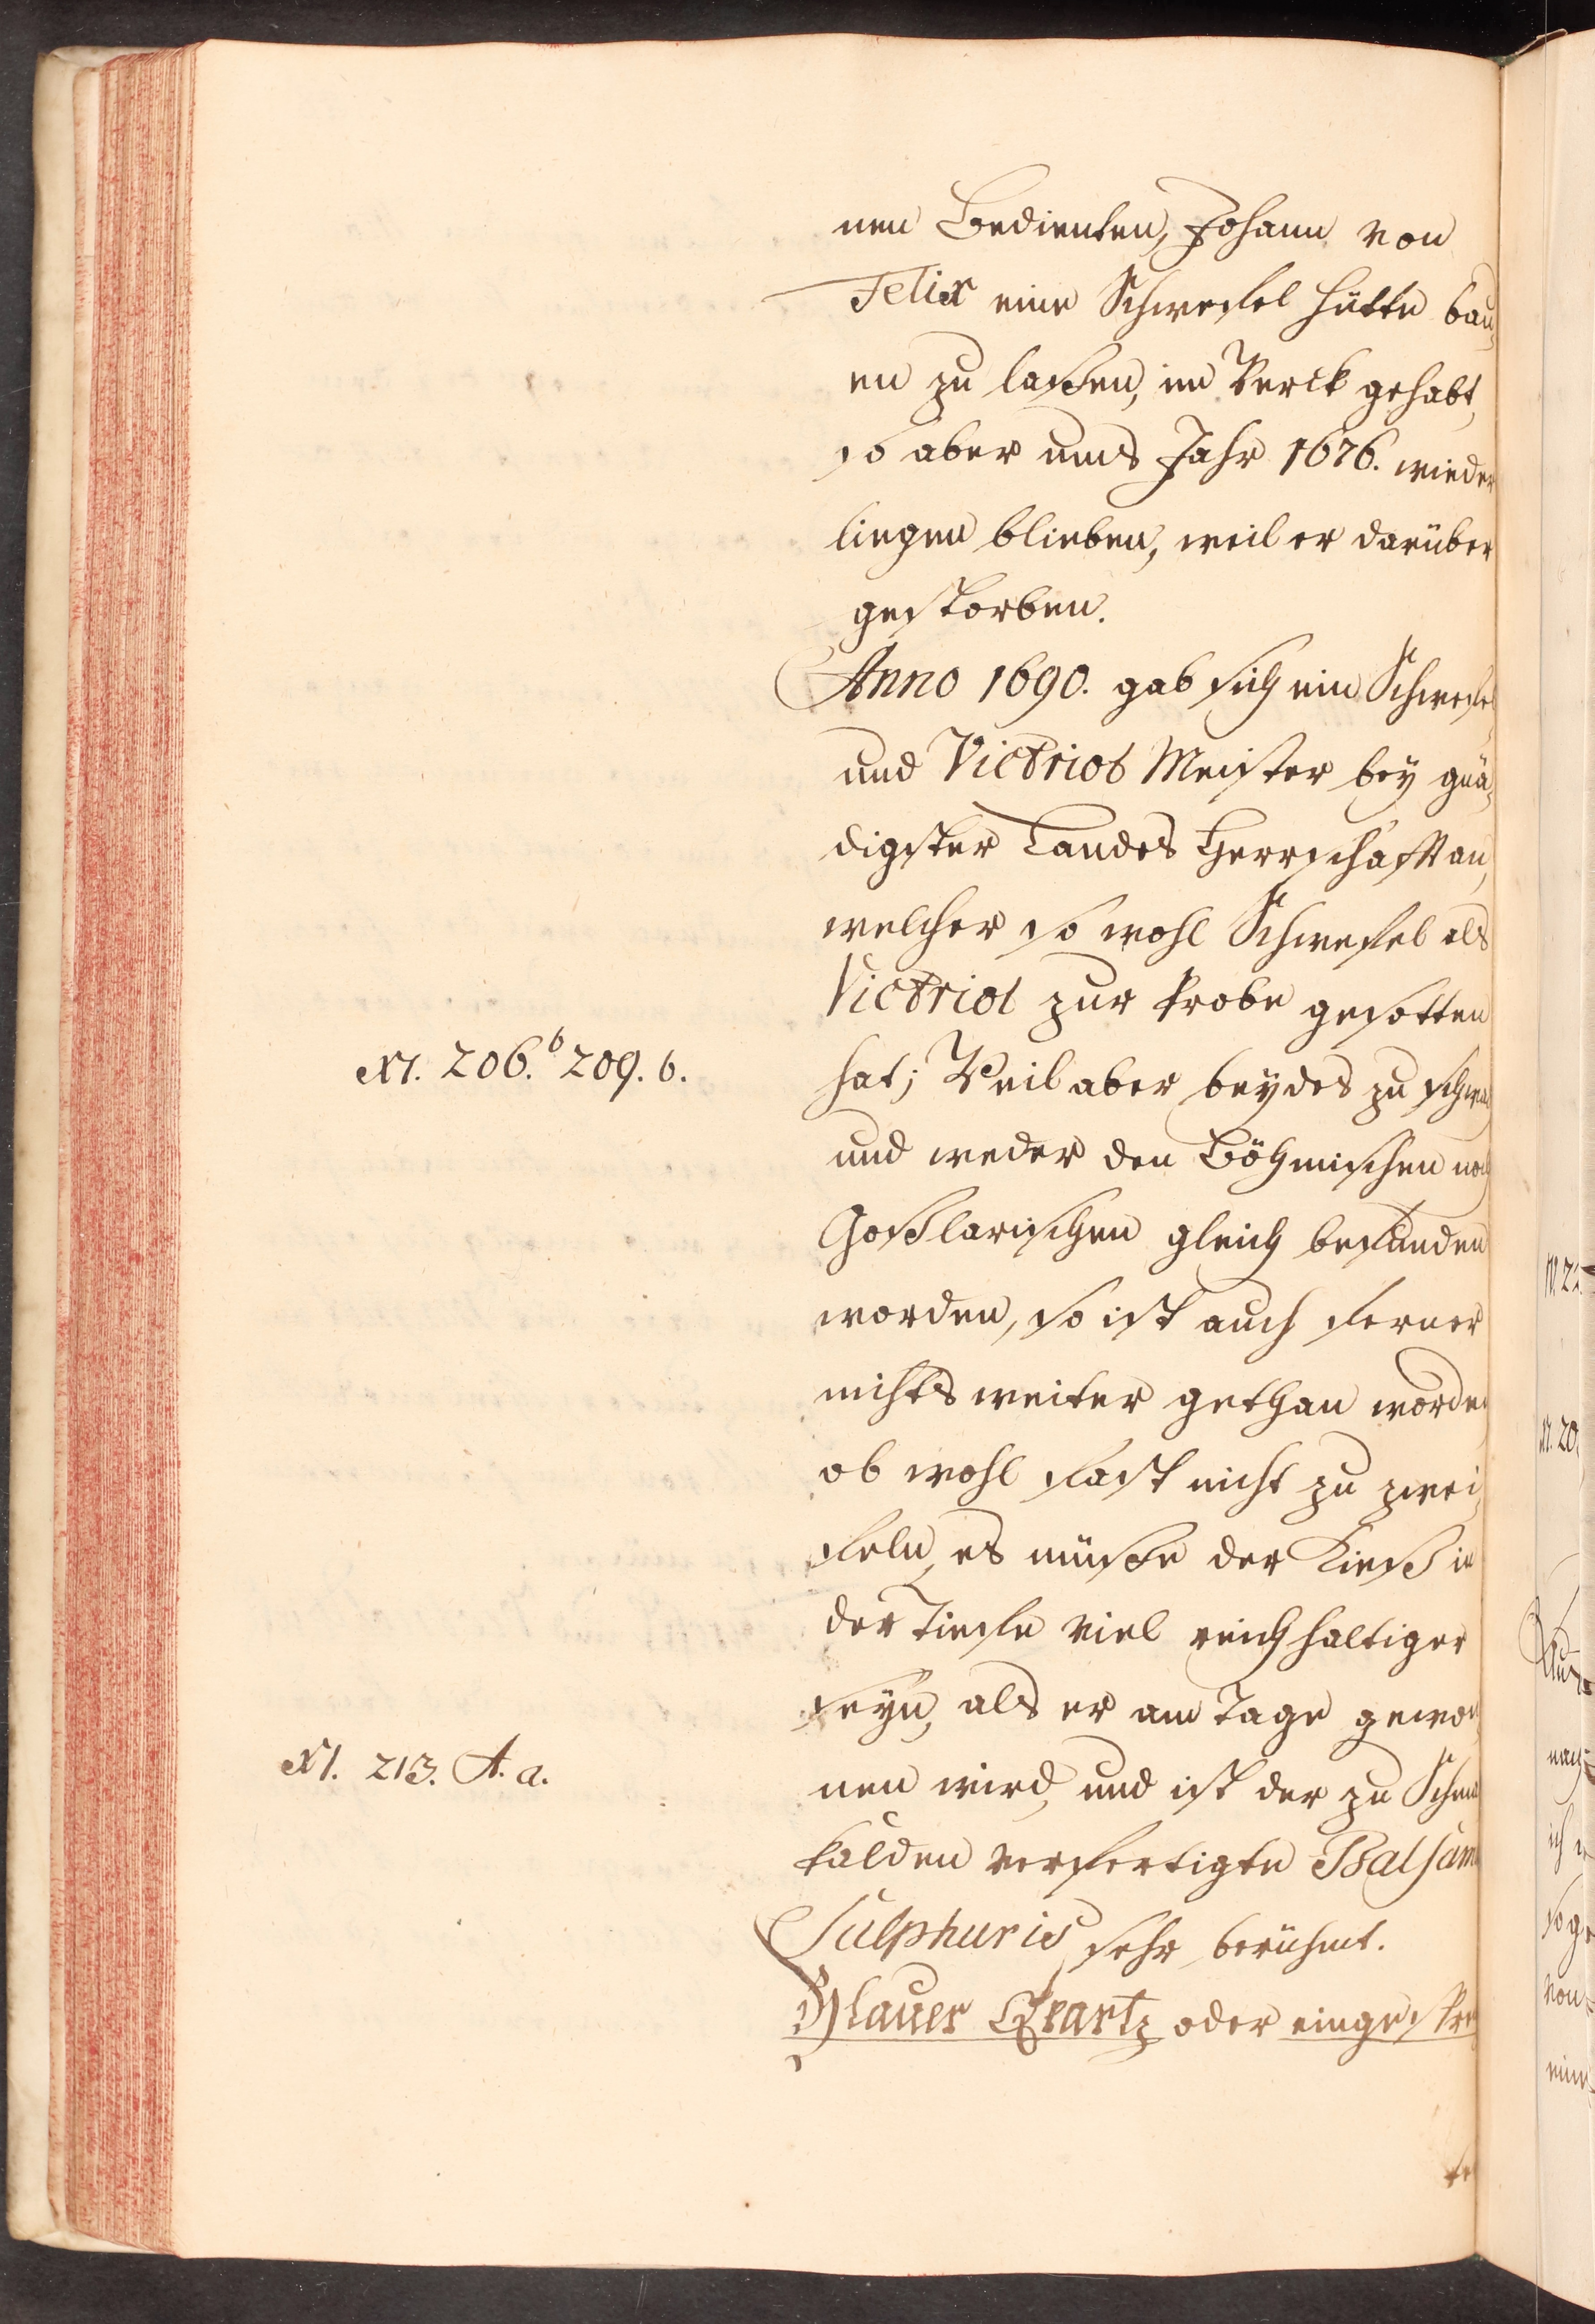 nen Bedienten, Johann von
Felix eine Schwefel Hütte bau-
en zu laßen, im Werck gehabt,
so aber ums Jahr 1676. wieder
liegen blieben, weil er darüber
gestorben.
Anno 1690. gab sich ein Schwefel
und Victriol Meister bey gnä-
digster Landes Herrschafft an,
welcher so wohl Schwefel als
Victriol zur Probe gesotten
N. 206.b 209. b.
hat; Weil aber beydes zu schwach
und weder den Böhmischen noch
Goßlarischen gleich befunden
worden, so ist auch ferner
nichts weiter gethan worden
ob wohl fast nicht zu zwei-
feln, es müße der Kieß in
der Tieffe viel reichhaltiger
seyn, als er am Tage gewon-
N. 213. A. a.
nen wird, und ist der zu Schmal-
kalden verfertigte Balsam
Sulphuris sehr berühmt.
Blauer Qvartz oder einge spre